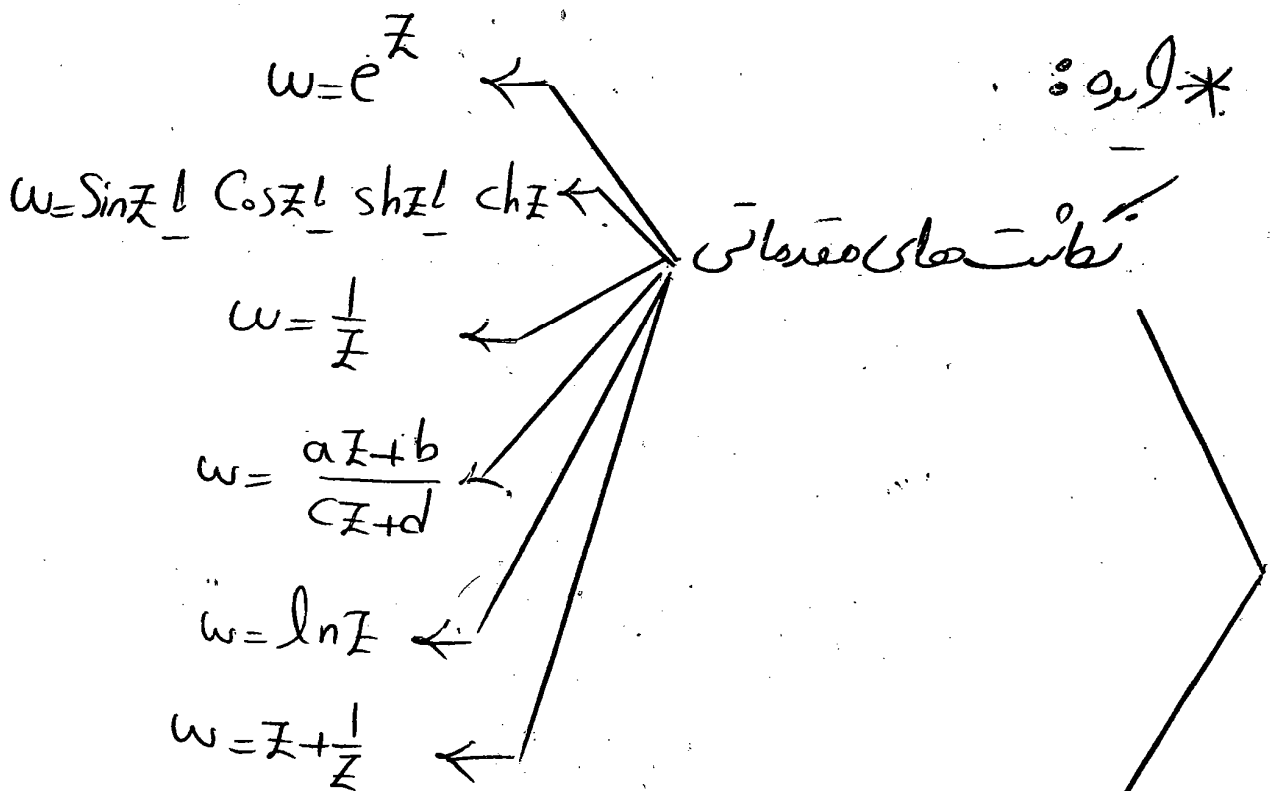 * ایده :
نگاشت های مقدماتی
w = e^z
w = Sinz یا Cosz یا shz یا chz
w = 1/z
w = (az+b)/(cz+d)
w = lnz
w = z + 1/z